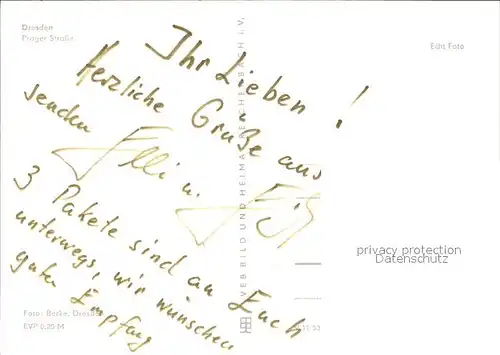 Dresden
Prager Straße
Echt Foto
Ihr Lieben!
Herzliche Grüße aus
senden
Elli u.
3 Pakete sind an Euch
unterwegs, wir wünschen
guten Empfang
VEB BILD UND HEIMAT REICHENBACH i.V.
privacy protection
Datenschutz
Foto: Barke, Dresden
EVP 0,20 M